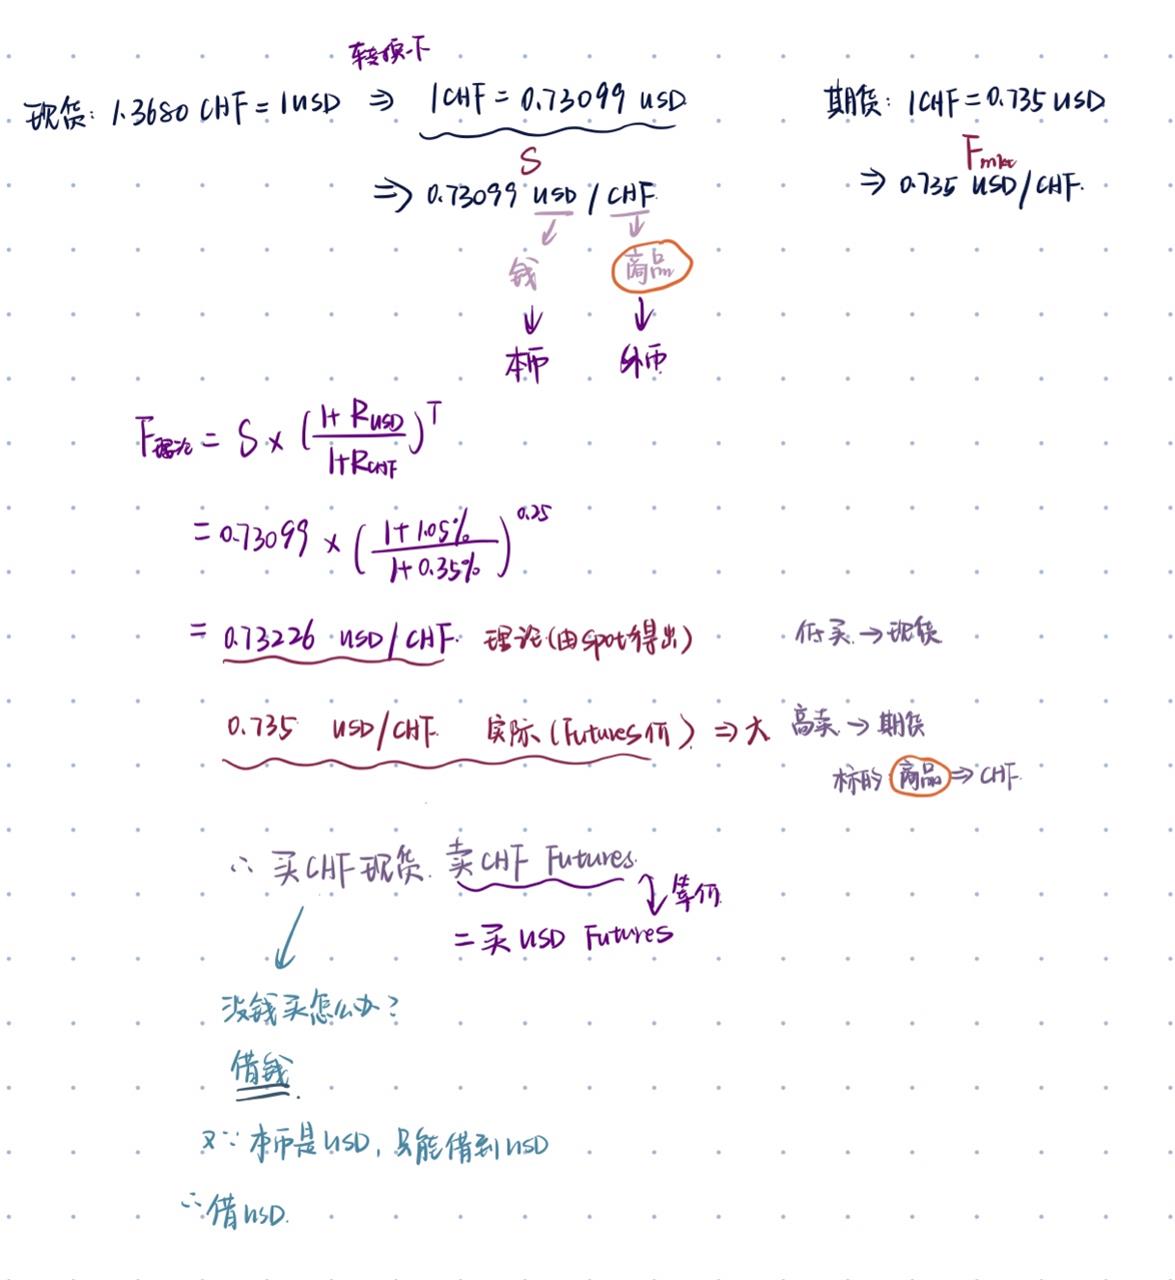 转换一下
现货: 1.3680 CHF = 1USD ⇒ 1CHF = 0.73099 USD
期货: 1CHF = 0.735 USD
S
Fmkt
⇒ 0.73099 USD / CHF
⇒ 0.735 USD/CHF.
钱 商品
本币 外币
F理论 = S × ((1+RUSD)/(1+RCHF))^T
= 0.73099 × ((1+1.05%)/(1+0.35%))^0.25
= 0.73226 USD/CHF. 理论(由spot得出) 低买 → 现货
0.735 USD/CHF. 实际(Futures价) ⇒ 大 高卖 → 期货
标的 商品 ⇒ CHF
∴ 买CHF现货. 卖CHF Futures.
等价
= 买 USD Futures
没钱买怎么办?
借钱.
又∵ 本币是USD, 只能借到USD
∴ 借USD.